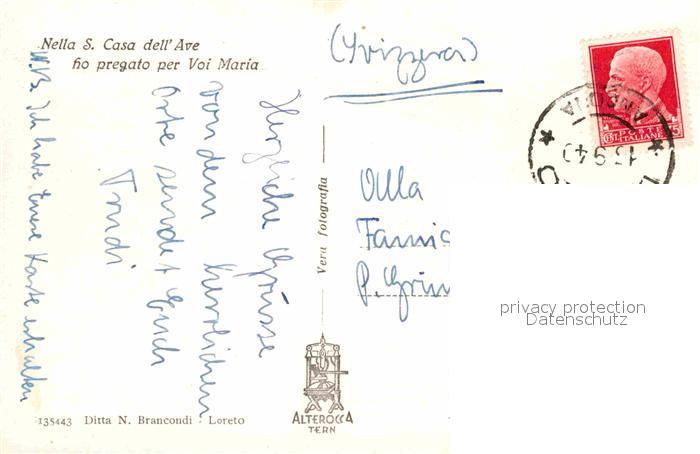 Nella S. Casa dell'Ave
ho pregato per Voi Maria
(Svizzera)
Herzliche Grüsse
von dem herrlichen
Orte sendet Euch
Trudi
N.B. Ich habe Eure Karte erhalten
Vera fotografia
Alla
P. Grin
POSTE
ITALIANE
75
ANCONA
13.9.40
privacy protection
Datenschutz
ALTEROCCA
TERNI
135443 Ditta N. Brancondi - Loreto